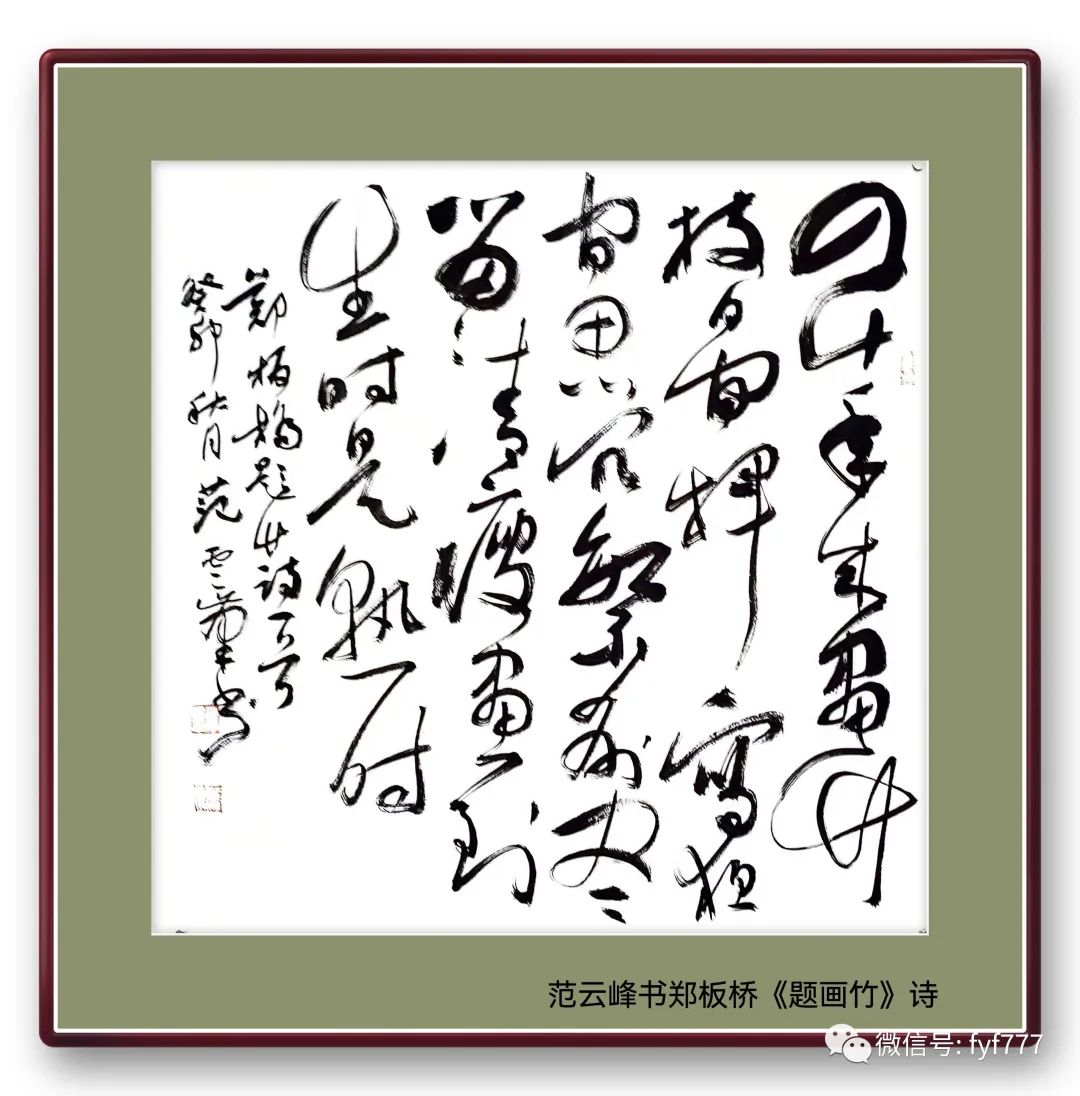 四十年来畫竹
枝日间挥寫夜
间思冗繁削尽
留清瘦畫到
生时是熟时
鄭板橋题竹诗一首
癸卯秋月范云峰书
范云峰书郑板桥《题画竹》诗
微信号: fyf777